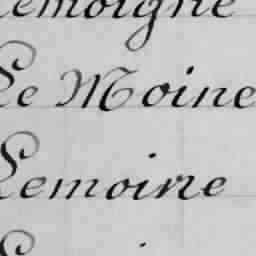 Lemoigne
Le Moine
Lemoine